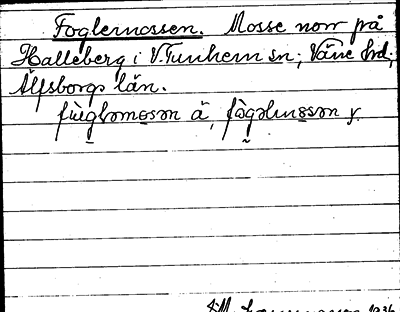 Foglemossen. Mosse norr på
Halleberg i V.Tunhem sn; Väne hd;
Älfsborgs län.
fùəgləmosən ä, fògəlmosən y.
1936